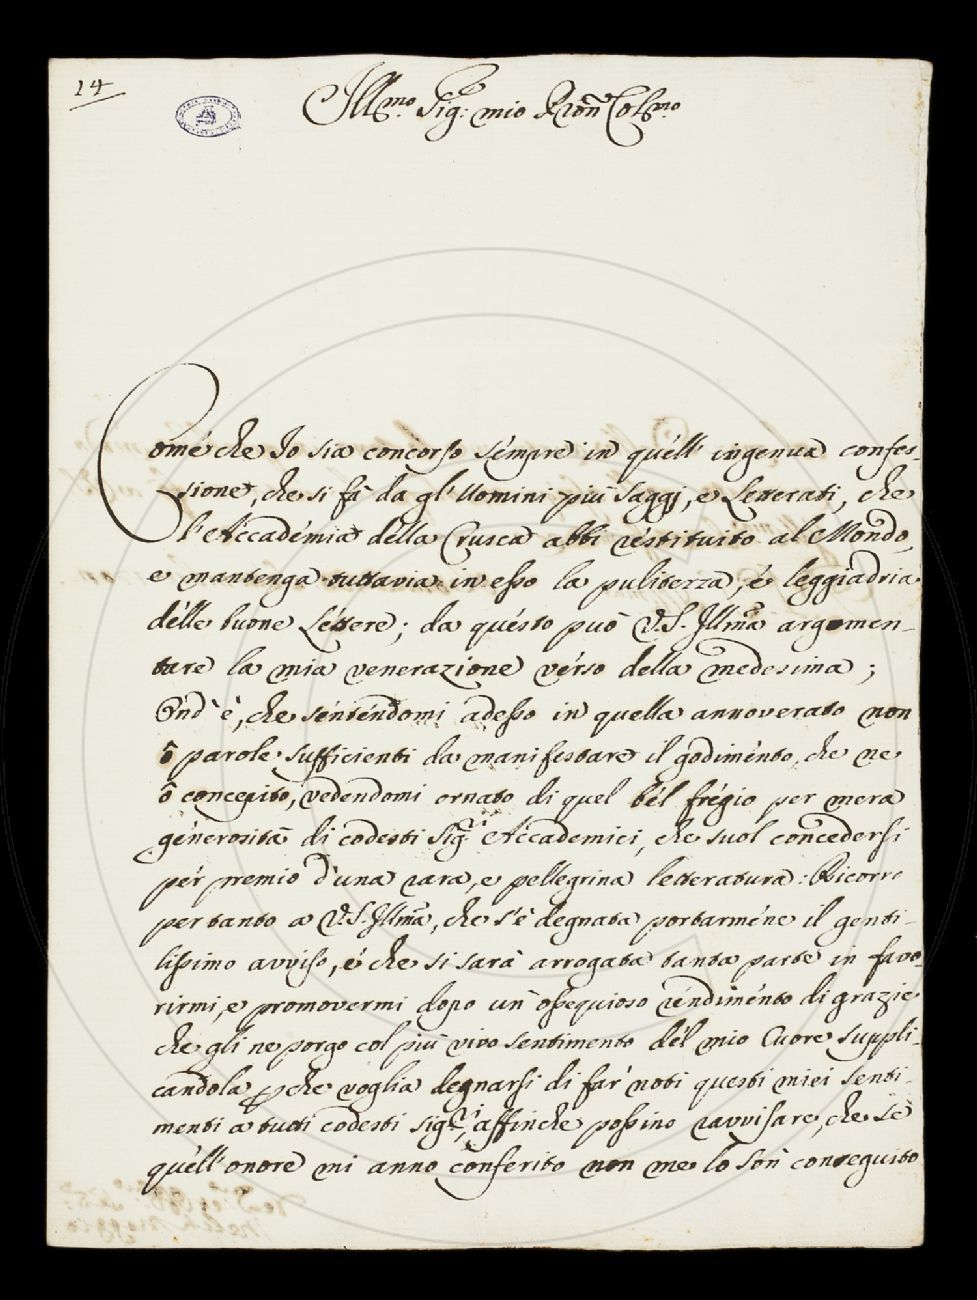 14
Ill.mo Sig: mio P̄ron̄ Col.mo
Comé che Io sia concorso sémpre in quéll' ingenua confes-
sione, che si fà da gl' Uomini più Saggj, e Letterati, che
l'Accadémia della Crusca abbi réstituito al Mondo,
e mantenga tuttavia in esso la pulitezza, é leggiadria
délle buone Léttere; da quésto può V.S. Ill̄ma argomen-
tare la mia venerazione vérso della medesima;
Ond' è, che séntendomi adesso in quella annoverato non
ô parole sufficienti da manifestare il godiménto, che ne
ô concepito, vedendomi ornato di quel bél frégio, per mera
génerosità di codesti Sig.ri Accademici, che suol concedersi
pér premio d'una rara, e pellegrina letteratura: Ricorro
pertanto a V.S. Ill̄ma, che s'é degnata portarméne il genti-
lissimo avviso, é che si sarà arrogata tanta parte in favo-
rirmi, e promovermi dopo un' ossequioso réndiménto di grazie
che gli ne porgo col più vivo sentimento dél mio Cuore suppli-
candola p̱che voglia degnarsi di far' noti questi miei senti-
menti a tutti codesti Sig.ri, affinche possino ravvisare, che sé
quéll' onore mi anno conferito non me lo son conseguito